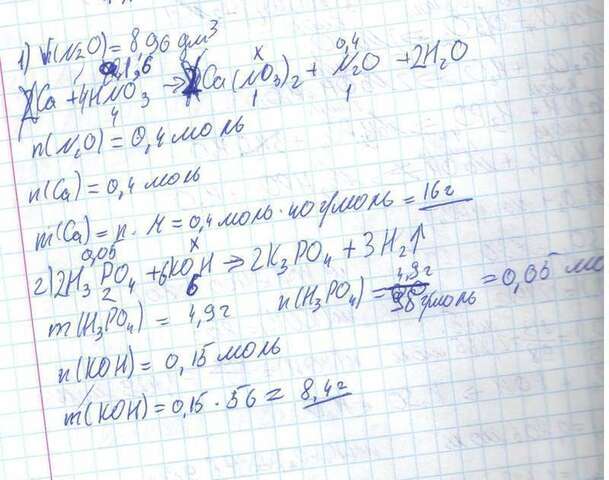 1) V(N₂O) = 8,96 дм³
1,6 x 0,4
Ca + 4HNO₃ → Ca(NO₃)₂ + N₂O + 2H₂O
4 1 1
n(N₂O) = 0,4 моль
n(Ca) = 0,4 моль
m(Ca) = n · M = 0,4 моль · 40 г/моль = 16 г
0,05 x
2) 2H₃PO₄ + 6KOH → 2K₃PO₄ + 3H₂↑
2 6
m(H₃PO₄) = 4,9 г n(H₃PO₄) = 4,9 г / 98 г/моль = 0,05 мо
n(KOH) = 0,15 моль
m(KOH) = 0,15 · 56 = 8,4 г